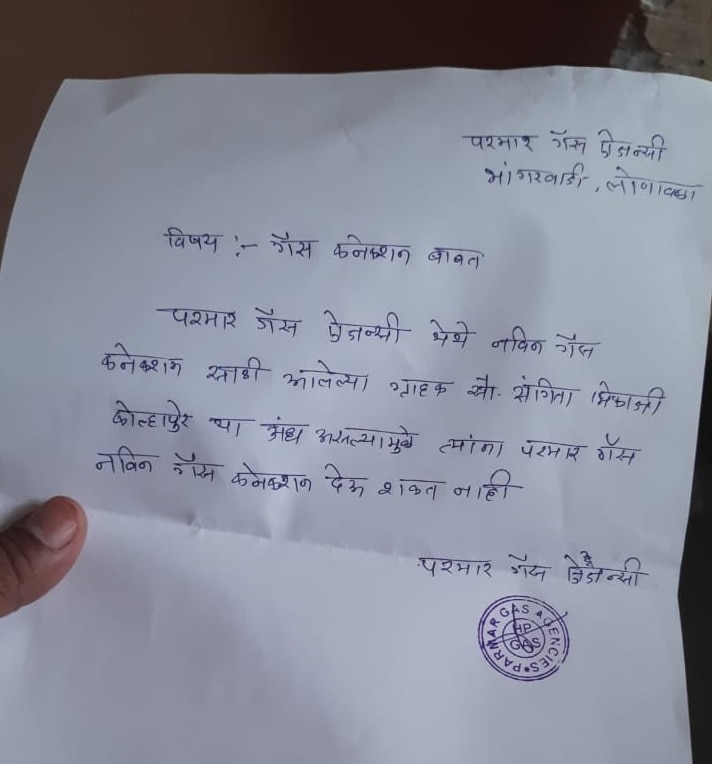 परमार गॅस ऐजन्सी
भांगरवाडी, लोणावळा
विषय :- गॅस कनेक्शन बाबत
परमार गॅस ऐजन्सी येथे नविन गॅस
कनेक्शन साठी आलेल्या ग्राहक सौ. संगिता भिकाजी
कोल्हापुरे या अंध असल्यामुळे त्यांना परमार गॅस
नविन गॅस कनेक्शन देऊ शकत नाही
परमार गॅस ऐजन्सी
PARMAR GAS AGENCIES
HP
GAS